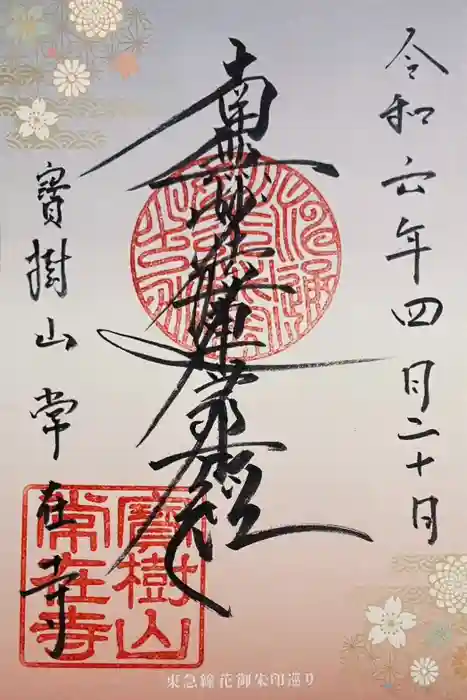 令和六年四月二十日
南無妙法蓮華経
寶樹山常在寺
寶樹山
常在寺
東急線花御朱印巡り